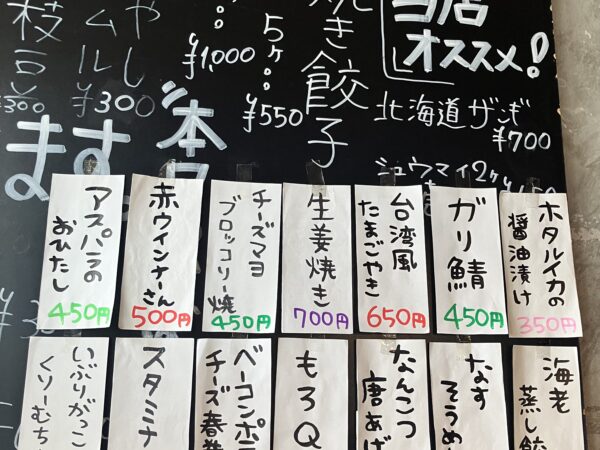 当店
オススメ!
北海道ザンギ
¥700
シュウマイ2ケ
焼き餃子
5ケ
¥550
¥1,000
¥300
枝豆
¥300
本日
ます
ホタルイカの
醤油漬け
350円
ガリ鯖
450円
台湾風
たまごやき
650円
生姜焼き
700円
チーズマヨ
ブロッコリー焼
450円
赤ウインナーさん
500円
アスパラの
おひたし
450円
海老
蒸し餃
なす
そうめ
なんこつ
唐あげ
もろQ
ベーコンポテ
チーズ春巻
スタミナ
いぶりがっこ
くりーむち